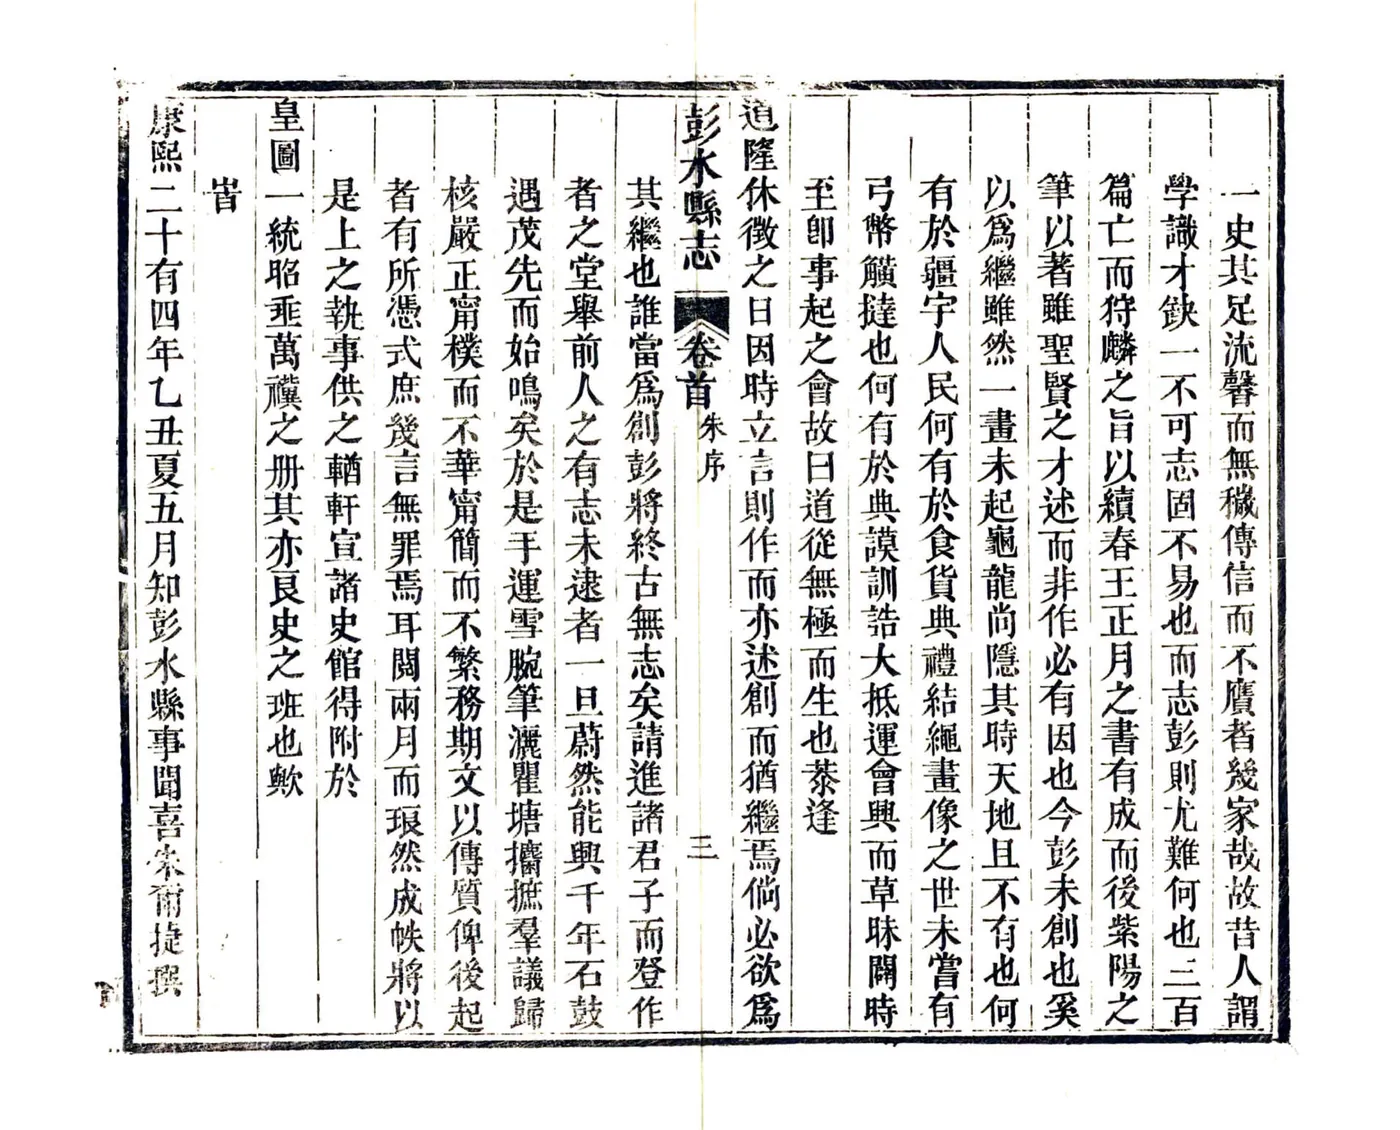 一史其足流馨而無穢傳信而不贗者幾家哉故昔人謂
學識才缺一不可志固不易也而志彭則尤難何也三百
篇亡而狩麟之旨以續春王正月之書有成而後紫陽之
筆以著雖聖賢之才述而非作必有因也今彭未創也奚
以爲繼雖然一畫未起龜龍尚隱其時天地且不有也何
有於疆宇人民何有於食貨典禮結繩畫像之世未嘗有
弓幣觵撻也何有於典謨訓誥大抵運會興而草昧闢時
至卽事起之會故曰道從無極而生也茶逢
道隆休徵之日因時立言則作而亦述創而猶繼焉倘必欲爲
彭水縣志
卷首
朱序
三
其繼也誰當爲創彭將終古無志矣請進諸君子而登作
者之堂舉前人之有志未逮者一旦蔚然能興千年石鼓
遇茂先而始鳴矣於是手運雪腕筆灑瞿塘擕摭羣議歸
核嚴正甯樸而不華甯簡而不繁務期文以傳質俾後起
者有所憑式庶幾言無罪焉耳閱兩月而琅然成帙將以
是上之執事供之輶軒宣諸史館得附於
皇圖一統昭垂萬禩之册其亦良史之班也歟
旹
康熙二十有四年乙丑夏五月知彭水縣事聞喜朱爾捷撰